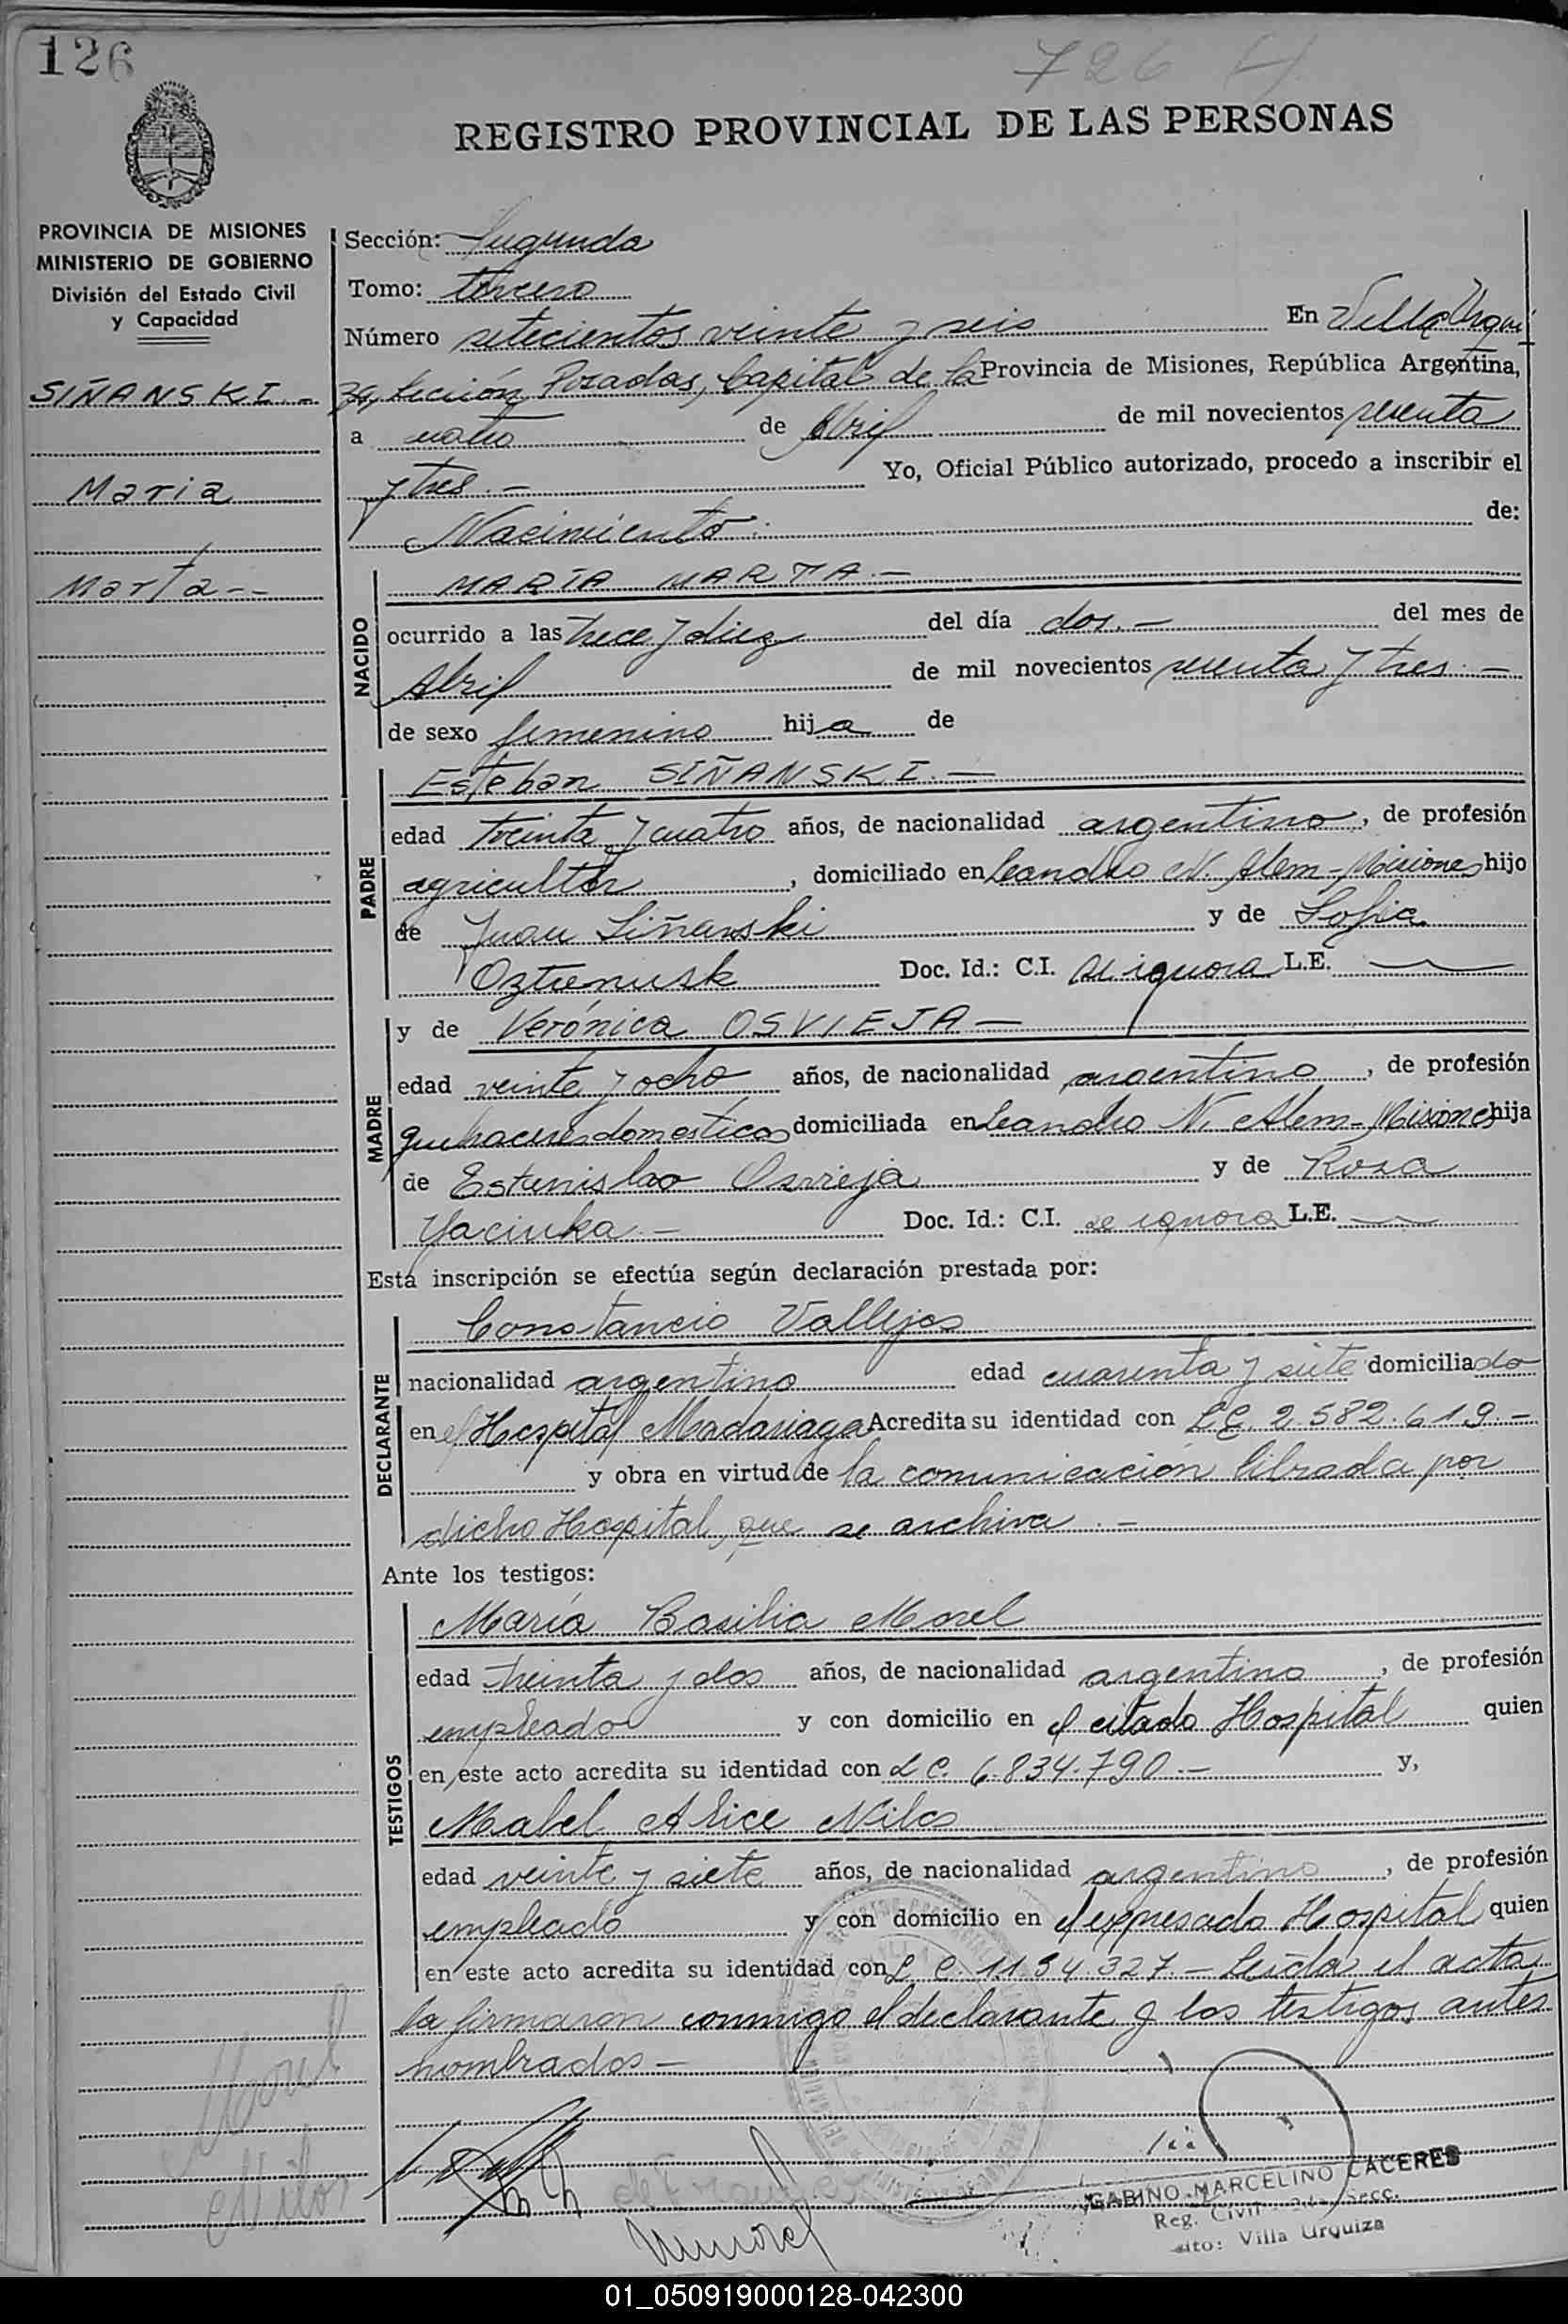 126
726
REGISTRO PROVINCIAL DE LAS PERSONAS
PROVINCIA DE MISIONES
MINISTERIO DE GOBIERNO
División del Estado Civil
y Capacidad
SIÑANSKI.-
Maria
Marta--
Sección: Segunda
Tomo: tercero
Número setecientos veinte y seis En Villa Urqui
za, sección Posadas, Capital de la Provincia de Misiones, República Argentina,
a cuatro de Abril de mil novecientos sesenta
y tres.- Yo, Oficial Público autorizado, procedo a inscribir el
Nacimiento de:
NACIDO
MARÍA MARTA.-
ocurrido a las trece y diez del día dos.- del mes de
Abril de mil novecientos sesenta y tres.-
de sexo femenino hija de
PADRE
Esteban SIÑANSKI.-
edad treinta y cuatro años, de nacionalidad argentino, de profesión
agricultor, domiciliado en Leandro N. Alem-Misiones hijo
de Juan Siñanski y de Sofia
Oztrenusk Doc. Id.: C.I. se ignora L.E.
MADRE
y de Verónica OSVIEJA-
edad veinte y ocho años, de nacionalidad argentino, de profesión
quehaceres domesticos domiciliada en Leandro N. Alem-Misiones hija
de Estanislao Osvieja y de Rosa
Yaciuka.- Doc. Id.: C.I. se ignora L.E.
Esta inscripción se efectúa según declaración prestada por:
DECLARANTE
Constancio Vallejos
nacionalidad argentino edad cuarenta y siete domiciliado
en el Hospital Madariaga Acredita su identidad con L.E. 2.582.619.-
y obra en virtud de la comunicación librada por
dicho Hospital, que se archiva.-
Ante los testigos:
TESTIGOS
María Basilia Morel
edad treinta y dos años, de nacionalidad argentina, de profesión
empleado y con domicilio en el citado Hospital quien
en este acto acredita su identidad con L C. 6.834.790.- y,
Mabel Alice Nilos
edad veinte y siete años, de nacionalidad argentino, de profesión
empleado y con domicilio en el expresado Hospital quien
en este acto acredita su identidad con L C. 1194.327.- Leída el acta
la firmaron conmigo el declarante y los testigos antes
nombrados-
Morel
Nilos
GABINO MARCELINO CACERES
Reg. Civil 2da Secc.
Villa Urquiza
01_050919000128-042300